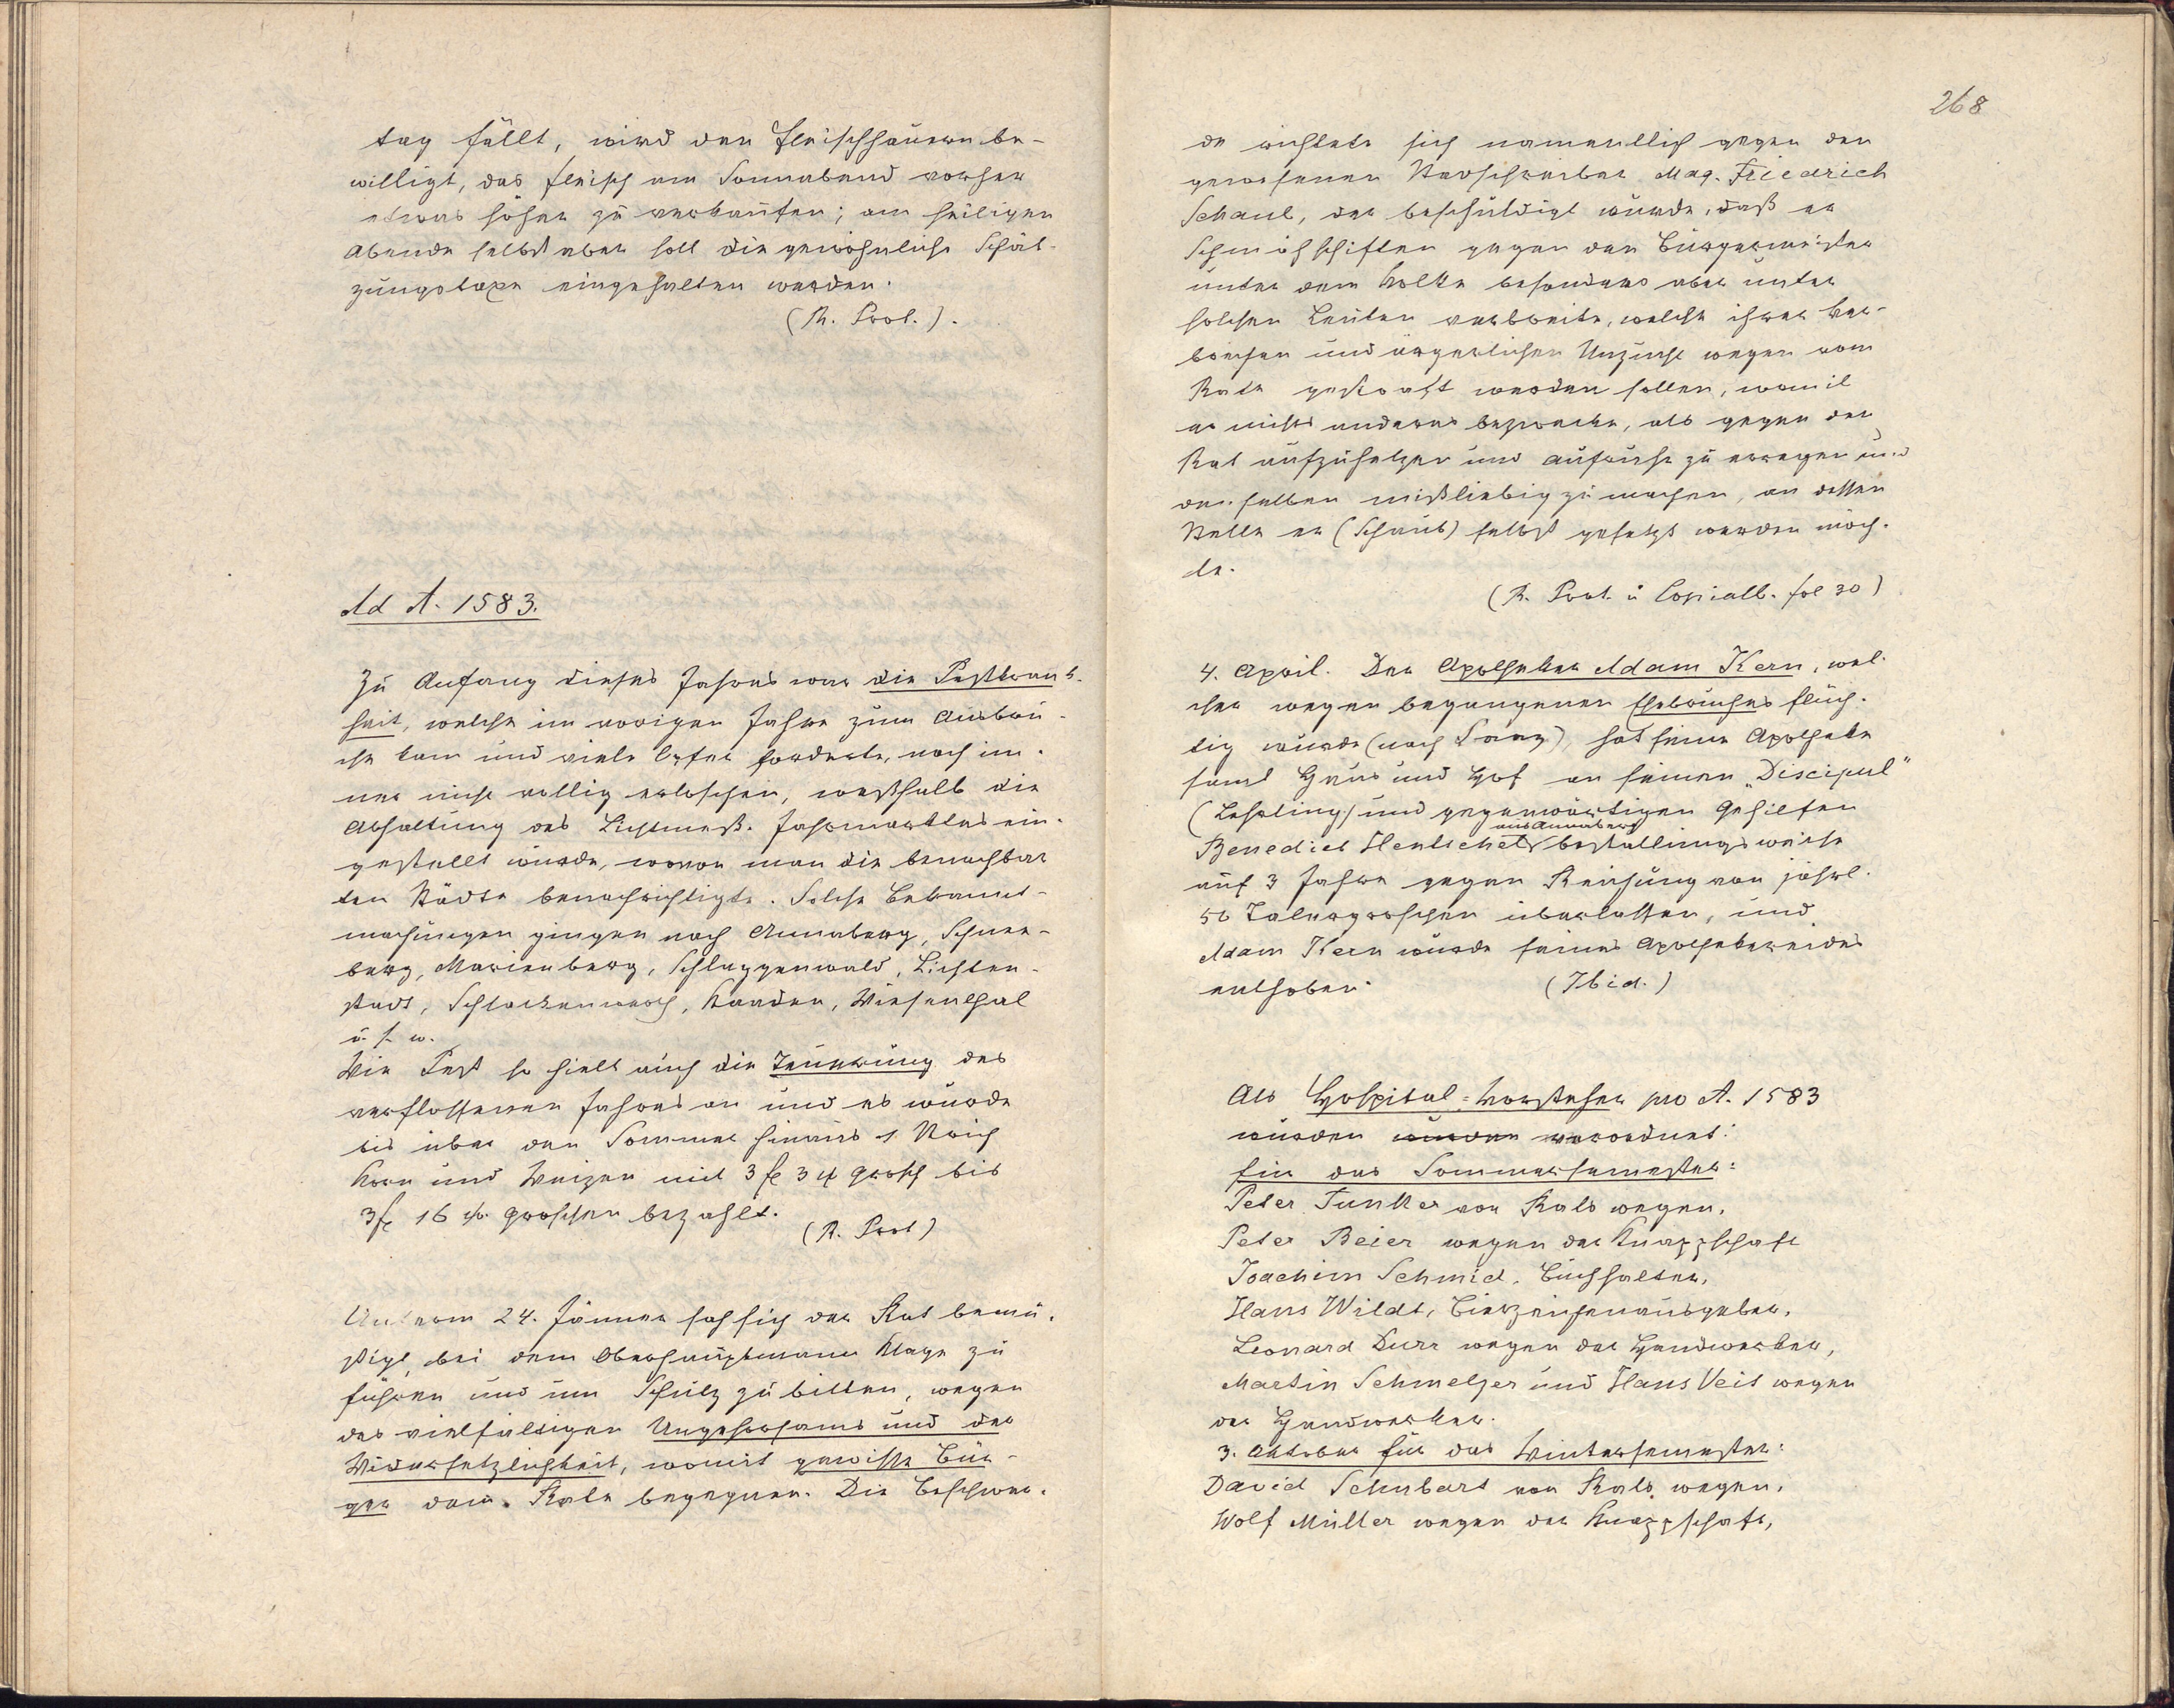 tag fällt, wird den Fleischhauern be-
willigt, das Fleisch am Sonnabend vorher
etwas höher zu verkaufen; am heiligen
Abende selbst aber soll die gewöhnliche Schät-
zungstaxe eingehalten werden.
(R. Prot.).
Ad A. 1583.
Zu Anfang dieses Jahres war die Pestkrank-
heit, welche im vorigen Jahre zum Ausbru-
che kam und viele Opfer forderte, noch im-
mer nicht völlig erloschen, weßhalb die
Abhaltung des Lichtmeß-Jahrmarktes ein-
gestellt wurde, wovon man die benachbar
ten Städte benachrichtigte. Solche Bekannt-
machungen gingen nach Annaberg, Schnee-
berg, Marienberg, Schlaggenwald, Lichten-
stadt, Schlackenwerth, Kaaden, Wiesenthal
u. s. w.
Wie Pest so hielt auch die Teuerung des
verflossenen Jahres an und es wurde
bis über den Sommer hinaus 1 Strich
Korn und Weizen mit 3 fl 34 grosch bis
3 fl 16 w. Groschen bezahlt.
(R. Prot)
Unterm 24. Jänner sah sich der Rat bemü-
ßigt, bei dem Oberhauptmann Klage zu
führen und um Schutz zu bitten, wegen
des vielfältigen Ungehorsams und der
Widersetzlichkeit, womit gewisse Bür-
ger dem Rate begegnen. Die Beschwer-
268
de richtete sich namentlich gegen den
gewesenen Stadtschreiber Mag. Friedrich
Schaub, der beschuldigt wurde, daß er
Schmähschiften gegen den Bürgermeister
unter dem Volke besonders aber unter
solchen Leuten verbreite, welche ihrer Ver-
brechen und ärgerlichen Unzucht wegen vom
Rate gestraft werden sollen, womit
er nichts anderes bezwecke, als gegen den
Rat aufzuhetzen und Aufruhr zu erregen und
denselben mißliebig zu machen, an dessen
Stelle er (Schaub) selbst gesetzt werden möch-
te.
(R. Prot. u Copialb. fol 30)
4. April. Der Apotheker Adam Kern, wel-
cher wegen begangenen Ehebruches flüch-
tig wurde (nach Prag), hat seine Apotheke
samt Haus und Hof an seinen „Discipul“
(Lehrling) und gegenwärtigen Gehilfen
aus Annaberg
Benedict Hentschel bestallungsweise
auf 3 Jahre gegen Reichung von jährl.
50 Talergroschen überlassen, und
Adam Kern wurde seines Apothekereides
enthoben. (Ibid.)
Als Hospital-Vorsteher pro A. 1583
wurden wurden verordnet:
für das Sommersemester:
Peter Junker von Rats wegen,
Peter Beier wegen der Knappschaft
Joachim Schmid, Buchhalter,
Hans Wildt, Bierzeichenausgeber,
Leonard Durr wegen der Handwerker,
Martin Schmelzer und Hans Veit wegen
der Handwerker.
3. Oktober für das Wintersemester:
David Schubart von Rats wegen,
Wolf Müller wegen der Knappschaft,